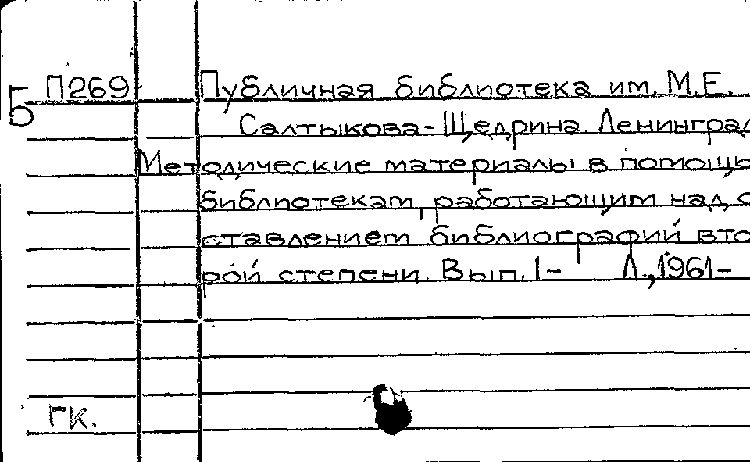 Б П269 Публичная библиотека им. М.Е.
Салтыкова-Щедрина. Ленинград
Методические материалы в помощь
библиотекам, работающим над со
ставлением библиографий вто
рой степени. Вып. 1- Л., 1961-
ГК.